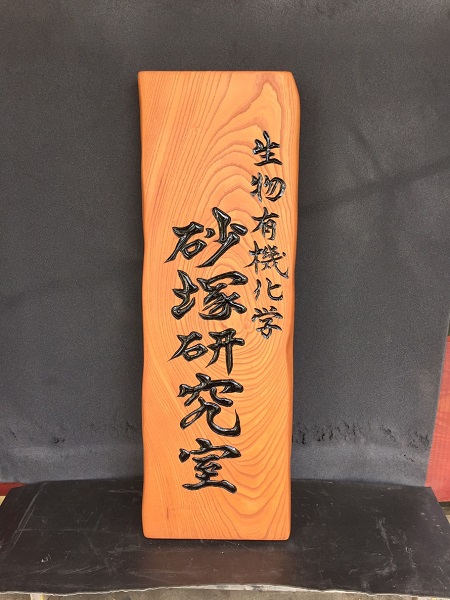 生物有機化学
砂塚研究室